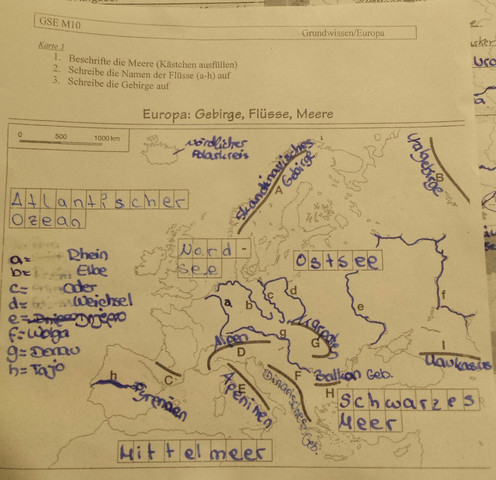 GSE M10
Grundwissen/Europa
Karte 1
1. Beschrifte die Meere (Kästchen ausfüllen)
2. Schreibe die Namen der Flüsse (a-h) auf
3. Schreibe die Gebirge auf
Europa: Gebirge, Flüsse, Meere
0 500 1000 km
nördlicher
Polarkreis
Skandinavisches
Gebirge
A
Uralgebirge
B
Atlantischer
Ozean
Nord-
see
Ostsee
a= Rhein
b= Elbe
c= Oder
d= Weichsel
e= Dnjepr
f= Wolga
g= Donau
h= Tajo
a
b
c
d
e
f
g
h
Alpen
D
G
Pyrenäen
C
Apeninen
E
Dinarisches Geb.
F
Balkan Geb.
H
I
Kaukasus
Schwarzes
Meer
Mittelmeer